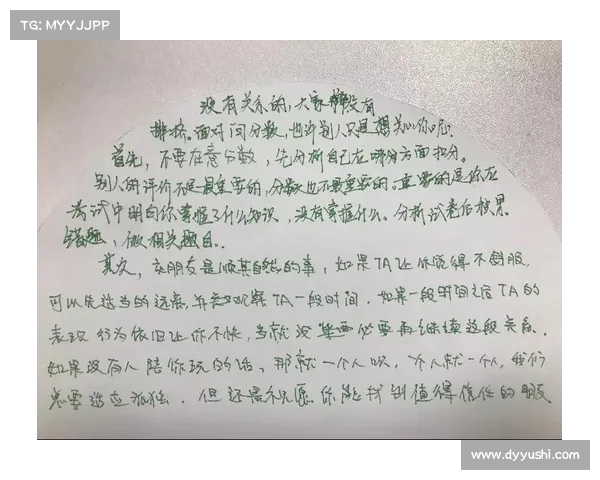 TG: MYYJJPP
没有关系的，大家都没有
排挤。面对问分数，也许别人只是想关心你呢。
首先，不要在意分数，先分析自己在哪部分方面扣分。
别人的评价不是最重要的，分数也不最重要的。重要的是你在
考试中明白你掌握了什么知识，没有掌握什么。分析试卷后积累
错题，做相关题目。
其次，交朋友是顺其自然的事，如果TA让你觉得不舒服，
可以先适当的远离，并在观察TA一段时间。如果一段时间之后TA的
表现行为依旧让你不快，当就没 必要再继续这段关系。
如果没有人陪你玩的话，那就一个人呗，一个人就一个人，我们
总要适应孤独。但还是祝愿你能找到值得信任的朋友
www.dyyushi.com